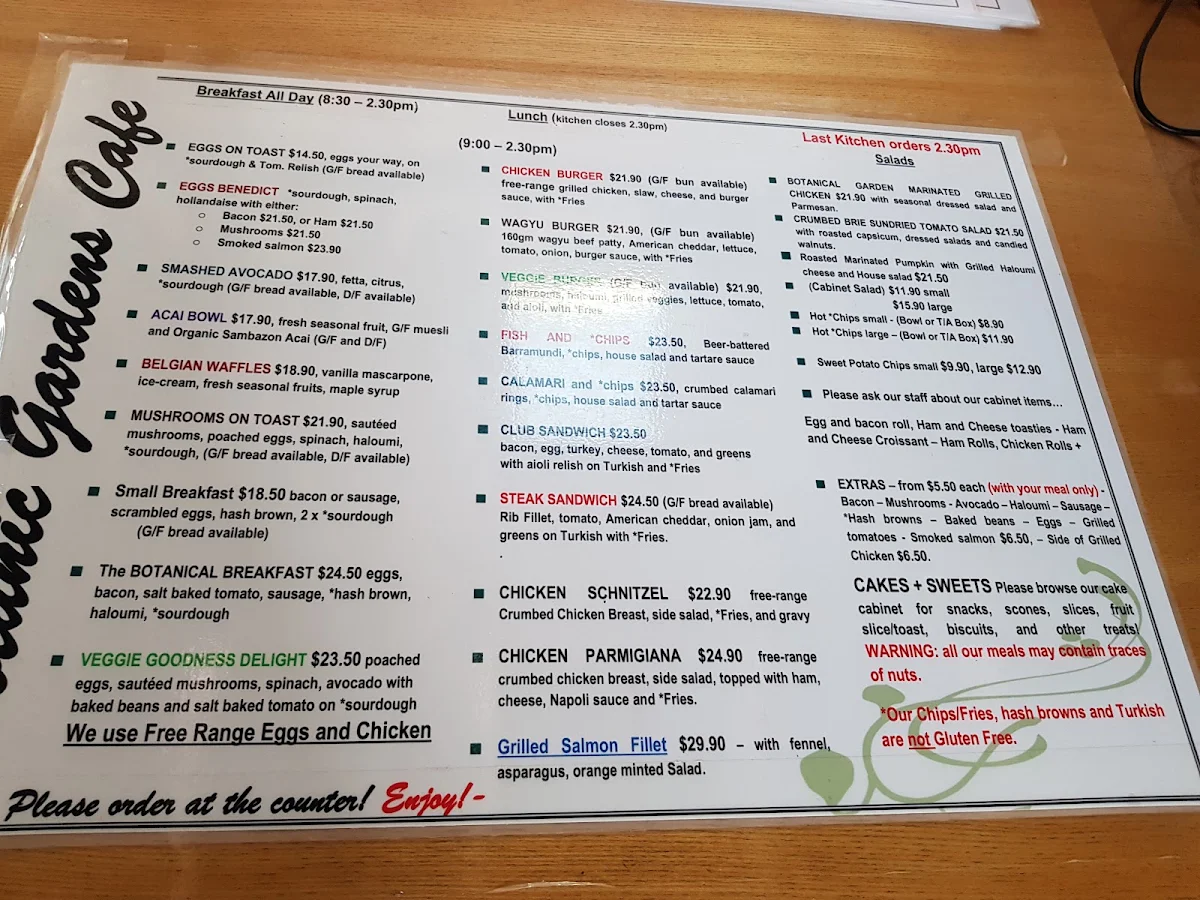 Gardens Cafe
Breakfast All Day (8:30 – 2.30pm)
EGGS ON TOAST $14.50, eggs your way, on
*sourdough & Tom. Relish (G/F bread available)
EGGS BENEDICT *sourdough, spinach,
hollandaise with either:
Bacon $21.50, or Ham $21.50
Mushrooms $21.50
Smoked salmon $23.90
SMASHED AVOCADO $17.90, fetta, citrus,
*sourdough (G/F bread available, D/F available)
ACAI BOWL $17.90, fresh seasonal fruit, G/F muesli
and Organic Sambazon Acai (G/F and D/F)
BELGIAN WAFFLES $18.90, vanilla mascarpone,
ice-cream, fresh seasonal fruits, maple syrup
MUSHROOMS ON TOAST $21.90, sautéed
mushrooms, poached eggs, spinach, haloumi,
*sourdough, (G/F bread available, D/F available)
Small Breakfast $18.50 bacon or sausage,
scrambled eggs, hash brown, 2 x *sourdough
(G/F bread available)
The BOTANICAL BREAKFAST $24.50 eggs,
bacon, salt baked tomato, sausage, *hash brown,
haloumi, *sourdough
VEGGIE GOODNESS DELIGHT $23.50 poached
eggs, sautéed mushrooms, spinach, avocado with
baked beans and salt baked tomato on *sourdough
We use Free Range Eggs and Chicken
Please order at the counter! Enjoy!-
Lunch (kitchen closes 2.30pm)
(9:00 – 2.30pm)
CHICKEN BURGER $21.90 (G/F bun available)
free-range grilled chicken, slaw, cheese, and burger
sauce, with *Fries
WAGYU BURGER $21.90, (G/F bun available)
160gm wagyu beef patty, American cheddar, lettuce,
tomato, onion, burger sauce, with *Fries
VEGGIE BURGER (G/F bun available) $21.90,
mushrooms, haloumi, grilled veggies, lettuce, tomato,
and aioli, with *Fries
FISH AND *CHIPS $23.50, Beer-battered
Barramundi, *chips, house salad and tartare sauce
CALAMARI and *chips $23.50, crumbed calamari
rings, *chips, house salad and tartar sauce
CLUB SANDWICH $23.50
bacon, egg, turkey, cheese, tomato, and greens
with aioli relish on Turkish and *Fries
STEAK SANDWICH $24.50 (G/F bread available)
Rib Fillet, tomato, American cheddar, onion jam, and
greens on Turkish with *Fries.
.
CHICKEN SCHNITZEL $22.90 free-range
Crumbed Chicken Breast, side salad, *Fries, and gravy
CHICKEN PARMIGIANA $24.90 free-range
crumbed chicken breast, side salad, topped with ham,
cheese, Napoli sauce and *Fries.
Grilled Salmon Fillet $29.90 – with fennel,
asparagus, orange minted Salad.
Last Kitchen orders 2.30pm
Salads
BOTANICAL GARDEN MARINATED GRILLED
CHICKEN $21.90 with seasonal dressed salad and
Parmesan.
CRUMBED BRIE SUNDRIED TOMATO SALAD $21.50
with roasted capsicum, dressed salads and candied
walnuts.
Roasted Marinated Pumpkin with Grilled Haloumi
cheese and House salad $21.50
(Cabinet Salad) $11.90 small
$15.90 large
Hot *Chips small - (Bowl or T/A Box) $8.90
Hot *Chips large – (Bowl or T/A Box) $11.90
Sweet Potato Chips small $9.90, large $12.90
Please ask our staff about our cabinet items…
Egg and bacon roll, Ham and Cheese toasties - Ham
and Cheese Croissant – Ham Rolls, Chicken Rolls +
EXTRAS – from $5.50 each (with your meal only) -
Bacon – Mushrooms - Avocado – Haloumi – Sausage –
*Hash browns – Baked beans – Eggs – Grilled
tomatoes - Smoked salmon $6.50, – Side of Grilled
Chicken $6.50.
CAKES + SWEETS Please browse our cake
cabinet for snacks, scones, slices, fruit
slice/toast, biscuits, and other treats!
WARNING: all our meals may contain traces
of nuts.
*Our Chips/Fries, hash browns and Turkish
are not Gluten Free.